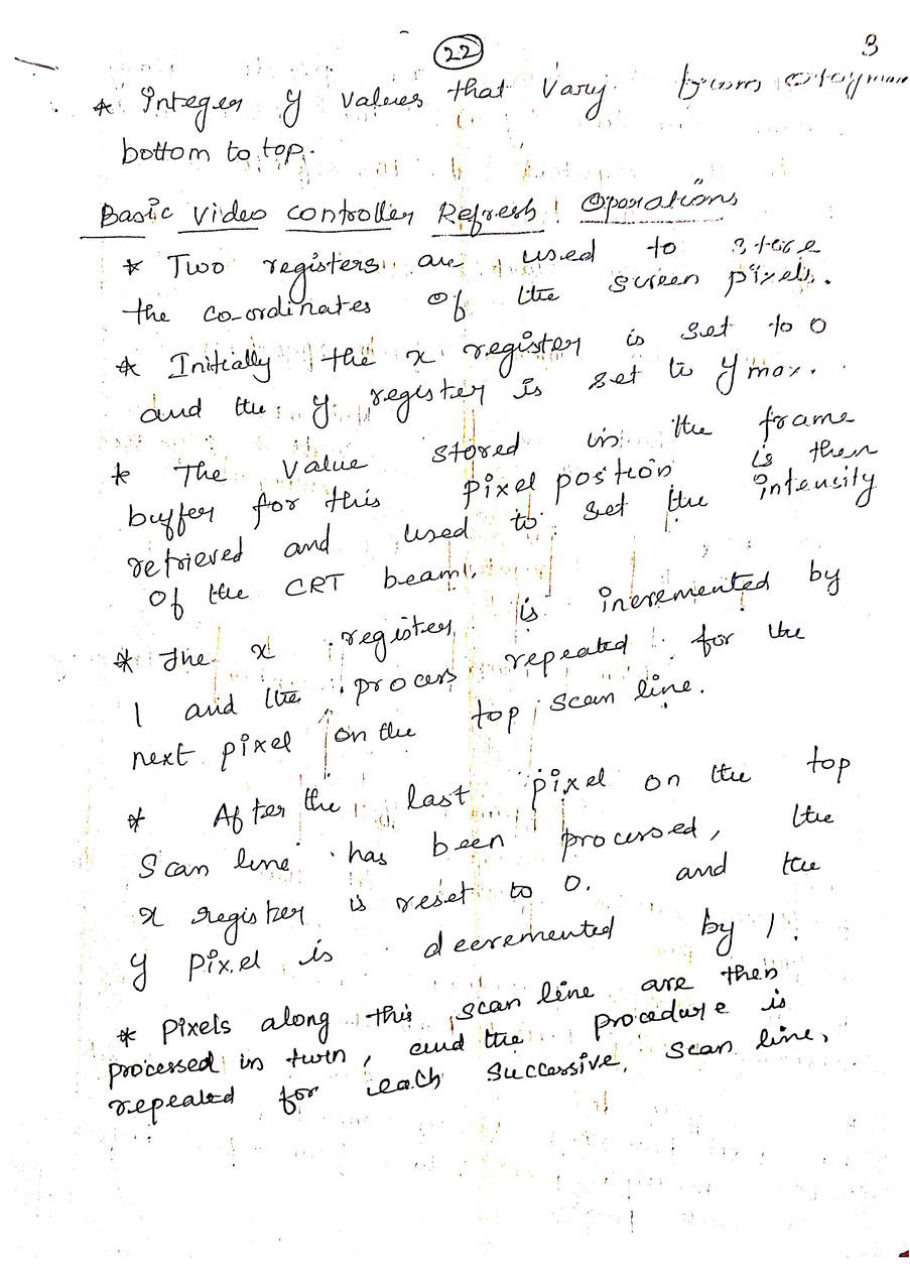 22
3
* Integer y values that vary from 0 to ymax
bottom to top.
Basic Video Controller Refresh Operations
* Two registers are used to store
the co-ordinates of the screen pixels.
* Initially the x register is set to 0
and the y register is set to ymax.
* The value stored in the frame
buffer for this pixel position is then
retrieved and used to set the intensity
of the CRT beam.
* The x register is incremented by
1 and the process repeated for the
next pixel on the top scan line.
* After the last pixel on the top
Scan line has been processed, the
x register is reset to 0. and the
y pixel is decremented by 1.
* Pixels along this scan line are then
processed in turn, and the procedure is
repeated for each successive scan line.